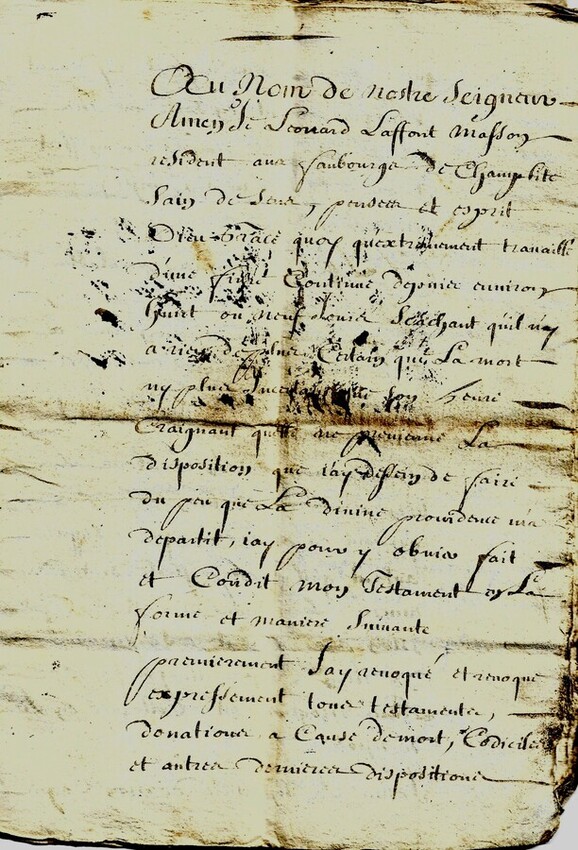 Au Nom de nostre Seigneur
Amen Je Leonard Laffont Masson
resident aux faubourgs de Champbite
Sain de sens, pensees et esprit
Dieu Grace quoy qu'extremement travaillé
d'une fievre Continue depuis environ
huict ou neuf jours Scachant quil n'y
a rien de plus Certain que La mort
ny plus son heure
Craignant quelle ne previenne La
disposition que j'ay dessein de faire
du peu que La divine providence m'a
departit, jay pour y obvier fait
et Condit mon Testament en La
forme et maniere Suivante
premierement Jay revoqué et revoque
expressement tous testaments,
donations a Cause de mort, Codiciles
et autres dernieres dispositions